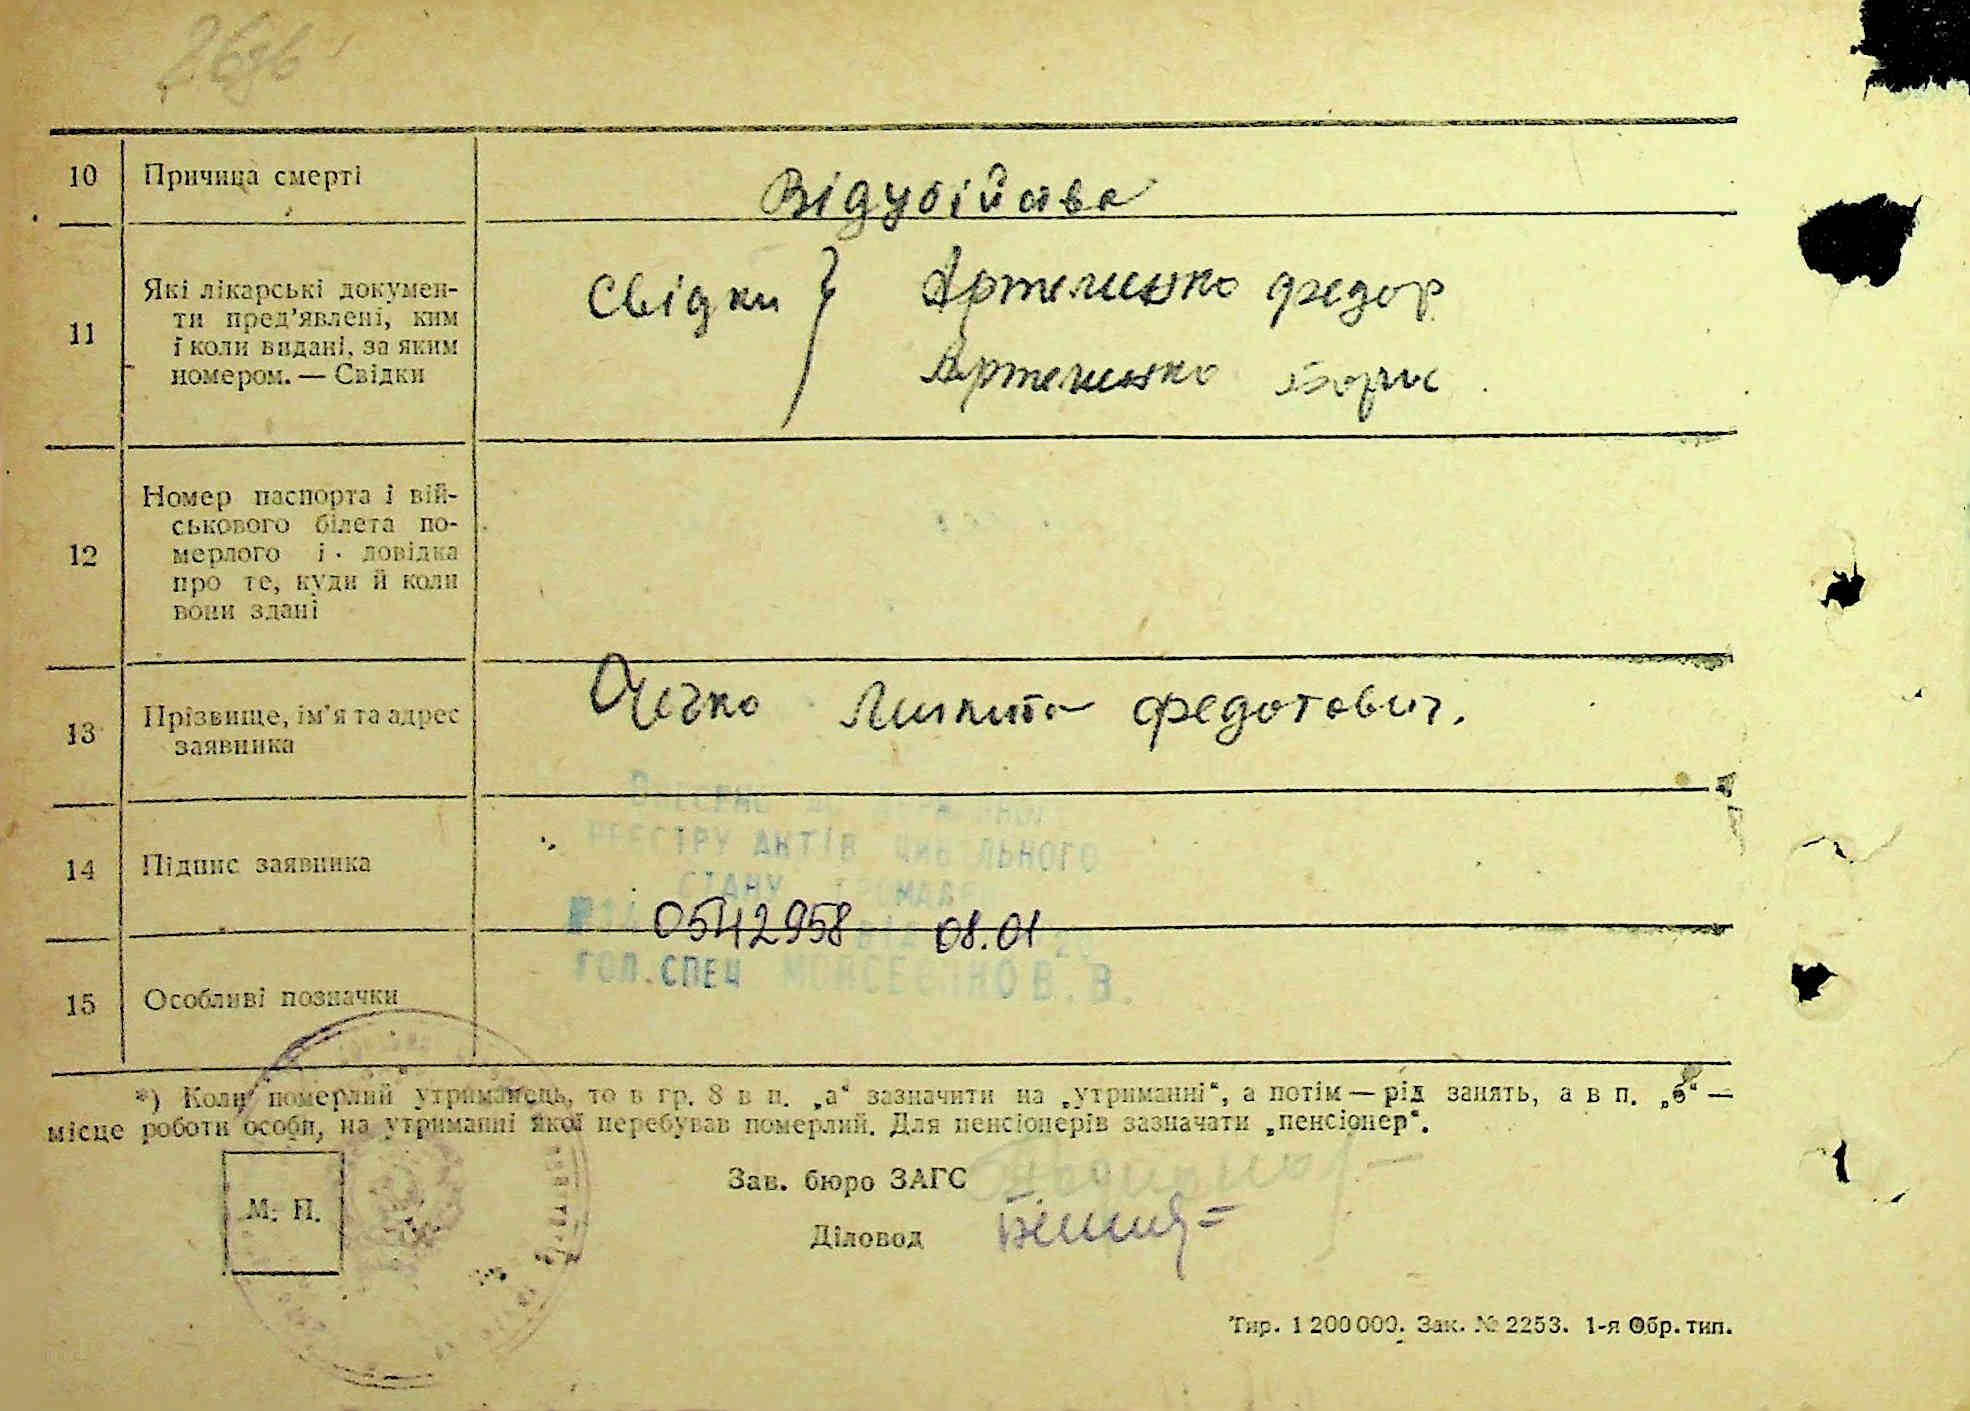 10 Причина смерті Відубійства
11 Які лікарські докумен-
ти пред'явлені, ким
і коли видані, за яким
номером. — Свідки
Свідки } Артеменко Федор
Артеменко Борис.
12 Номер паспорта і вій-
ськового білета по-
мерлого і довідка
про те, куди й коли
вони здані
13 Прізвище, ім'я та адрес
заявника
Микита Федотович.
РЕЄСТРУ АКТІВ ЦИВІЛЬНОГО
СТАНУ ГРОМАДЯН
14 Підпис заявника
0542958 08.01
ГОЛ. СПЕЦ
15 Особливі позначки
*) Коли померлий утриманець, то в гр. 8 в п. „а“ зазначити на „утриманні“, а потім — рід занять, а в п. „б“ —
місце роботи особи, на утриманні якої перебував померлий. Для пенсіонерів зазначати „пенсіонер“.
М. П.
Зав. бюро ЗАГС
Діловод
Тир. 1 200 000. Зак. № 2253. 1-я Обр. тип.